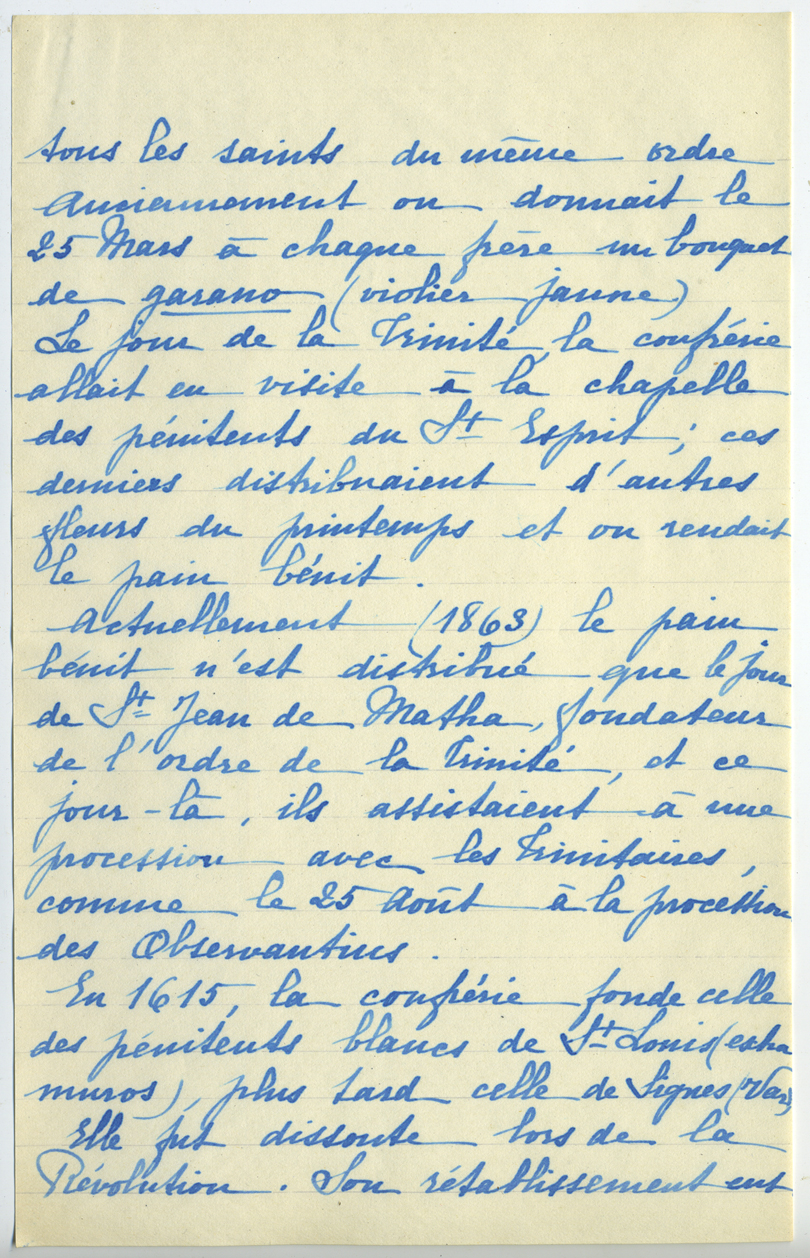 tous les saints du même ordre
Anciennement on donnait le
25 Mars à chaque frère un bouquet
de garano (violier jaune)
Le jour de la Trinité, la confrérie
allait en visite à la chapelle
des pénitents du St Esprit ; ces
derniers distribuaient d'autres
fleurs du printemps et on rendait
le pain bénit .
Actuellement (1863) le pain
bénit n'est distribué que le jour
de St Jean de Matha, fondateur
de l'ordre de la Trinité, et ce
jour-là, ils assistaient à une
procession avec les Trinitaires,
comme le 25 Août à la procession
des Observantins .
En 1615, la confrérie fonde celle
des pénitents blancs de St Louis (extra
muros), plus tard celle de Signes (Var)
Elle fut dissoute lors de la
Révolution . Son rétablissement eut